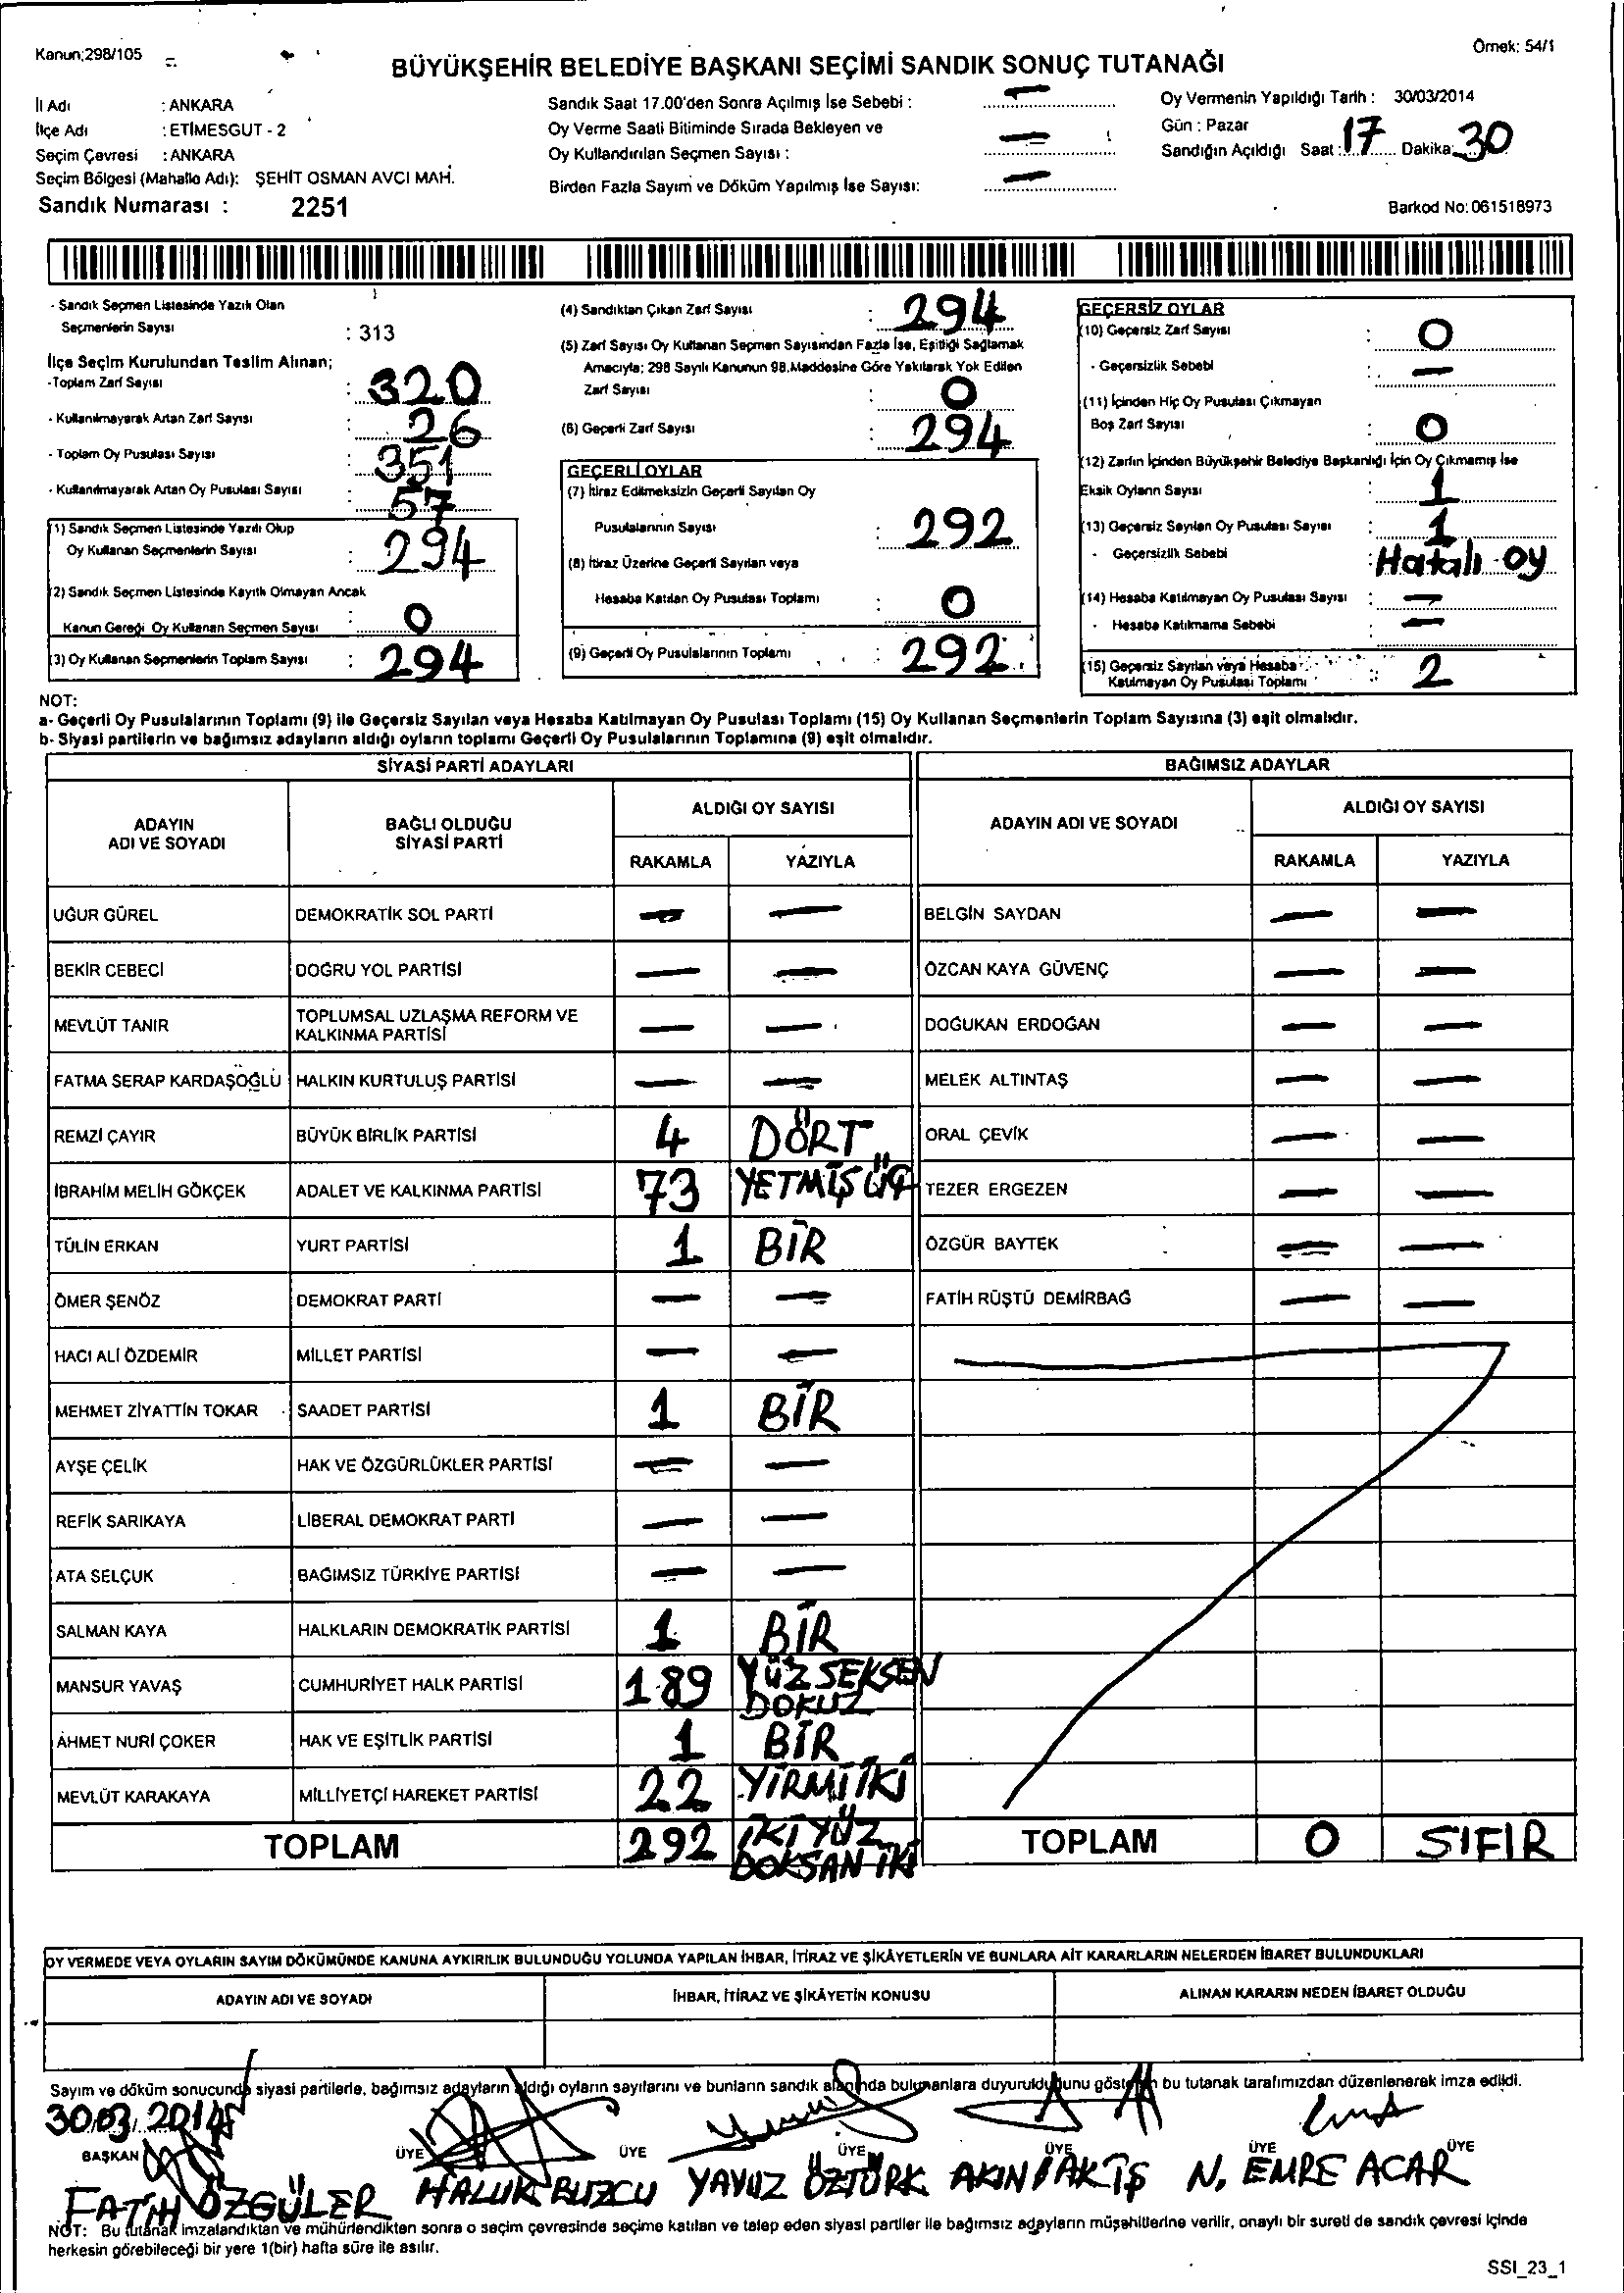 Kanun:298/105
Örnek: 54/1
BÜYÜKŞEHİR BELEDİYE BAŞKANI SEÇİMİ SANDIK SONUÇ TUTANAĞI
İl Adı : ANKARA
İlçe Adı : ETİMESGUT - 2
Seçim Çevresi : ANKARA
Seçim Bölgesi (Mahalle Adı): ŞEHİT OSMAN AVCI MAH.
Sandık Numarası : 2251
Sandık Saat 17.00'den Sonra Açılmış İse Sebebi : —
Oy Verme Saati Bitiminde Sırada Bekleyen ve
Oy Kullandırılan Seçmen Sayısı : —
Birden Fazla Sayım ve Döküm Yapılmış İse Sayısı: —
Oy Vermenin Yapıldığı Tarih : 30/03/2014
Gün : Pazar
Sandığın Açıldığı Saat : 17 Dakika: 30
Barkod No: 061518973
- Sandık Seçmen Listesinde Yazılı Olan
Seçmenlerin Sayısı : 313
İlçe Seçim Kurulundan Teslim Alınan;
-Toplam Zarf Sayısı : 320
- Kullanılmayarak Artan Zarf Sayısı : 26
- Toplam Oy Pusulası Sayısı : 351
- Kullanılmayarak Artan Oy Pusulası Sayısı : 57
(1) Sandık Seçmen Listesinde Yazılı Olup
Oy Kullanan Seçmenlerin Sayısı : 294
(2) Sandık Seçmen Listesinde Kayıtlı Olmayan Ancak
Kanun Gereği Oy Kullanan Seçmen Sayısı : 0
(3) Oy Kullanan Seçmenlerin Toplam Sayısı : 294
(4) Sandıktan Çıkan Zarf Sayısı : 294
(5) Zarf Sayısı Oy Kullanan Seçmen Sayısından Fazla İse, Eşitliği Sağlamak
Amacıyla; 298 Sayılı Kanunun 98.Maddesine Göre Yakılarak Yok Edilen
Zarf Sayısı : 0
(6) Geçerli Zarf Sayısı : 294
GEÇERLİ OYLAR
(7) İtiraz Edilmeksizin Geçerli Sayılan Oy
Pusulalarının Sayısı : 292
(8) İtiraz Üzerine Geçerli Sayılan veya
Hesaba Katılan Oy Pusulası Toplamı : 0
(9) Geçerli Oy Pusulalarının Toplamı : 292
GEÇERSİZ OYLAR
(10) Geçersiz Zarf Sayısı : 0
- Geçersizlik Sebebi : —
(11) İçinden Hiç Oy Pusulası Çıkmayan
Boş Zarf Sayısı : 0
(12) Zarfın İçinden Büyükşehir Belediye Başkanlığı İçin Oy Çıkmamış İse
Eksik Oyların Sayısı : 1
(13) Geçersiz Sayılan Oy Pusulası Sayısı : 1
- Geçersizlik Sebebi : Hatalı oy
(14) Hesaba Katılmayan Oy Pusulası Sayısı : —
- Hesaba Katılmama Sebebi : —
(15) Geçersiz Sayılan veya Hesaba
Katılmayan Oy Pusulası Toplamı : 2
NOT:
a- Geçerli Oy Pusulalarının Toplamı (9) ile Geçersiz Sayılan veya Hesaba Katılmayan Oy Pusulası Toplamı (15) Oy Kullanan Seçmenlerin Toplam Sayısına (3) eşit olmalıdır.
b- Siyasi partilerin ve bağımsız adayların aldığı oyların toplamı Geçerli Oy Pusulalarının Toplamına (9) eşit olmalıdır.
SİYASİ PARTİ ADAYLARI
ADAYIN ADI VE SOYADI
BAĞLI OLDUĞU SİYASİ PARTİ
ALDIĞI OY SAYISI
RAKAMLA YAZIYLA
UĞUR GÜREL DEMOKRATİK SOL PARTİ — —
BEKİR CEBECİ DOĞRU YOL PARTİSİ — —
MEVLÜT TANIR TOPLUMSAL UZLAŞMA REFORM VE KALKINMA PARTİSİ — —
FATMA SERAP KARDAŞOĞLU HALKIN KURTULUŞ PARTİSİ — —
REMZİ ÇAYIR BÜYÜK BİRLİK PARTİSİ 4 DÖRT
İBRAHİM MELİH GÖKÇEK ADALET VE KALKINMA PARTİSİ 73 YETMİŞ ÜÇ
TÜLİN ERKAN YURT PARTİSİ 1 BİR
ÖMER ŞENÖZ DEMOKRAT PARTİ — —
HACI ALİ ÖZDEMİR MİLLET PARTİSİ — —
MEHMET ZİYATTİN TOKAR SAADET PARTİSİ 1 BİR
AYŞE ÇELİK HAK VE ÖZGÜRLÜKLER PARTİSİ — —
REFİK SARIKAYA LİBERAL DEMOKRAT PARTİ — —
ATA SELÇUK BAĞIMSIZ TÜRKİYE PARTİSİ — —
SALMAN KAYA HALKLARIN DEMOKRATİK PARTİSİ 1 BİR
MANSUR YAVAŞ CUMHURİYET HALK PARTİSİ 189 YÜZ SEKSEN DOKUZ
AHMET NURİ ÇOKER HAK VE EŞİTLİK PARTİSİ 1 BİR
MEVLÜT KARAKAYA MİLLİYETÇİ HAREKET PARTİSİ 22 YİRMİ İKİ
TOPLAM 292 İKİ YÜZ DOKSAN İKİ
BAĞIMSIZ ADAYLAR
ADAYIN ADI VE SOYADI
ALDIĞI OY SAYISI
RAKAMLA YAZIYLA
BELGİN SAYDAN — —
ÖZCAN KAYA GÜVENÇ — —
DOĞUKAN ERDOĞAN — —
MELEK ALTINTAŞ — —
ORAL ÇEVİK — —
TEZER ERGEZEN — —
ÖZGÜR BAYTEK — —
FATİH RÜŞTÜ DEMİRBAĞ — —
TOPLAM 0 SIFIR
OY VERMEDE VEYA OYLARIN SAYIM DÖKÜMÜNDE KANUNA AYKIRILIK BULUNDUĞU YOLUNDA YAPILAN İHBAR, İTİRAZ VE ŞİKÂYETLERİN VE BUNLARA AİT KARARLARIN NELERDEN İBARET BULUNDUKLARI
ADAYIN ADI VE SOYADI
İHBAR, İTİRAZ VE ŞİKÂYETİN KONUSU
ALINAN KARARIN NEDEN İBARET OLDUĞU
Sayım ve döküm sonucunda siyasi partilerle, bağımsız adayların aldığı oyların sayılarını ve bunların sandık alanında bulunanlara duyurulduğunu gösteren bu tutanak tarafımızdan düzenlenerek imza edildi.
30.03.2014
BAŞKAN ÜYE ÜYE ÜYE ÜYE ÜYE ÜYE
FATİH ÖZGÜLER HALUK BUZCU YAVUZ ÖZTÜRK AKIN AKTİŞ N. EMRE ACAR
NOT: Bu tutanak imzalandıktan ve mühürlendikten sonra o seçim çevresinde seçime katılan ve talep eden siyasi partiler ile bağımsız adayların müşahitlerine verilir, onaylı bir sureti de sandık çevresi içinde
herkesin görebileceği bir yere 1(bir) hafta süre ile asılır.
SSI_23_1